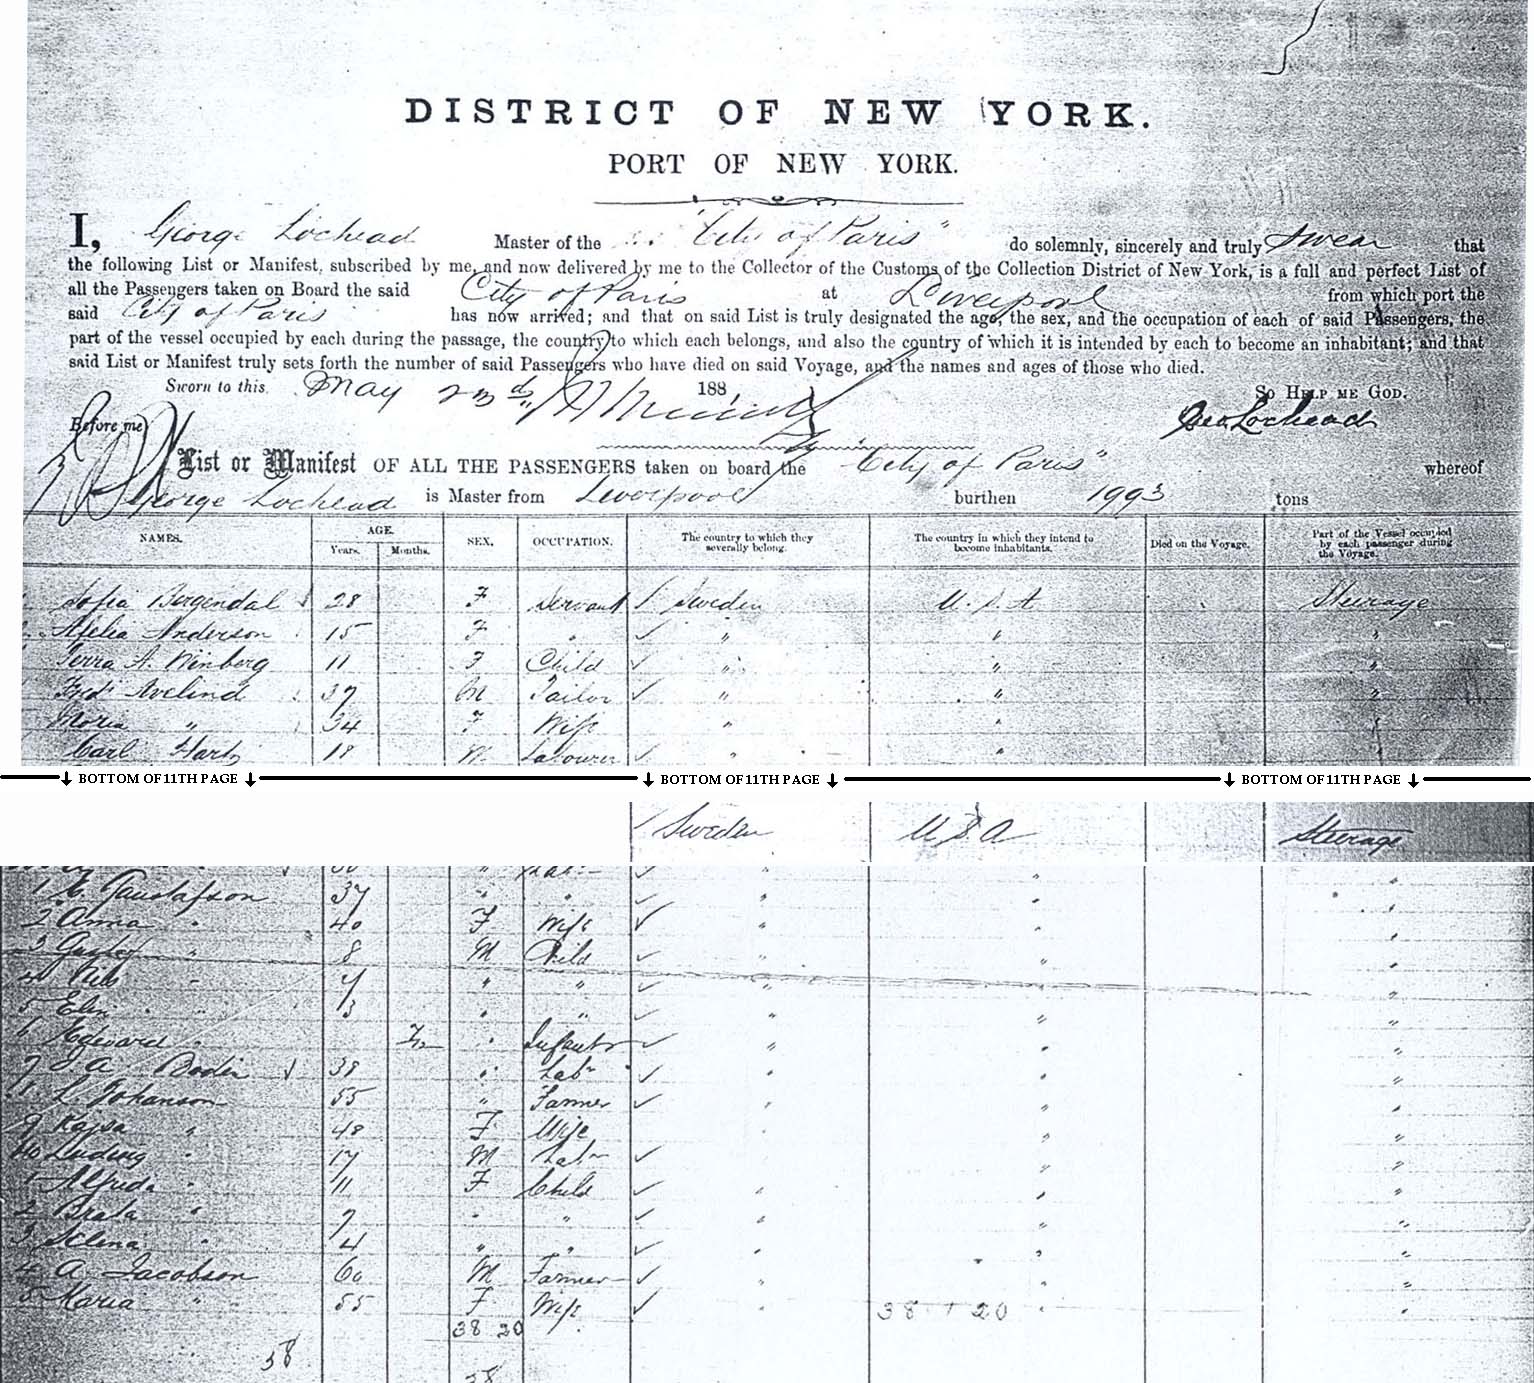 DISTRICT OF NEW YORK.
PORT OF NEW YORK.
I, George Lochead Master of the "City of Paris" do solemnly, sincerely and truly swear that
the following List or Manifest, subscribed by me, and now delivered by me to the Collector of the Customs of the Collection District of New York, is a full and perfect List of
all the Passengers taken on Board the said City of Paris at Liverpool from which port the
said City of Paris has now arrived; and that on said List is truly designated the age, the sex, and the occupation of each of said Passengers, the
part of the vessel occupied by each during the passage, the country to which each belongs, and also the country of which it is intended by each to become an inhabitant; and that
said List or Manifest truly sets forth the number of said Passengers who have died on said Voyage, and the names and ages of those who died.
Sworn to this. May 23d 188 So HELP ME GOD.
Before me Geo Lochead
List or Manifest OF ALL THE PASSENGERS taken on board the "City of Paris" whereof
George Lochead is Master from Liverpool burthen 1993 tons
NAMES. AGE. Years. Months. SEX. OCCUPATION. The country to which they severally belong. The country in which they intend to become inhabitants. Died on the Voyage. Part of the Vessel occupied by each passenger during the Voyage.
Sofia Bergendal 28 F Servant Sweden U.S.A Steerage
Anderson 15 F " " " "
A. Winberg 11 F Child " " "
Fred Avelind 37 M Tailor " " "
Maria " 34 F Wife " " "
Carl 18 M Labourer " " "
↓ BOTTOM OF 11TH PAGE ↓ ↓ BOTTOM OF 11TH PAGE ↓ ↓ BOTTOM OF 11TH PAGE ↓
Sweden U S A Steerage
1 Gustafson 37 " " " "
2 Anna " 40 F Wife " " "
3 Gustaf " 8 M Child " " "
4 Nils " 7 " " " " "
5 Elin " 3 " " " " "
6 Edward " " Infant " " "
7 J A Bodin 38 " Labr " " "
L Johanson 55 " Farmer " " "
9 Kajsa " 48 F Wife " " "
" 17 M Labr " "
1 Alfrida " 11 F Child " " "
2 " 7 " " " " "
3 " 4 " " " " "
4 A Jacobson 60 M Farmer " " "
5 Maria " 55 F Wife " 38 + 20 " "
38 20
58
58